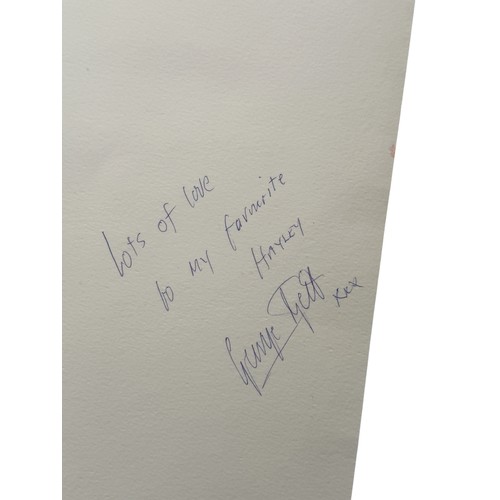 Lots of love
to my favourite
HAYLEY
George
xxx